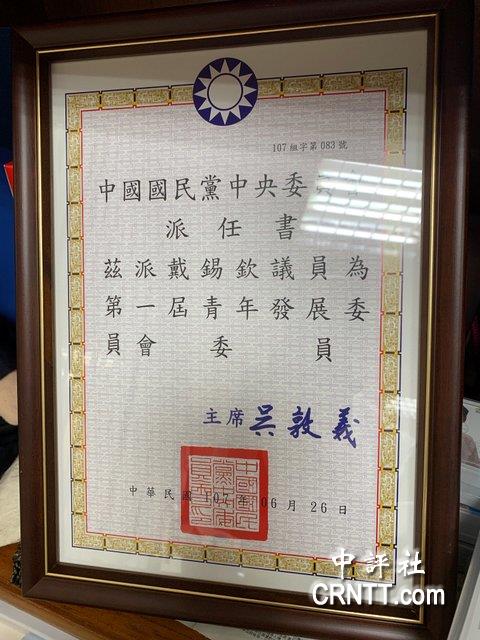 107組字第083號
中國國民黨中央委員會
派任書
茲派戴錫欽議員為
第一屆青年發展委
員會委員
主席 吳敦義
中華民國 107 年 06 月 26 日
中評社
CRNTT.com